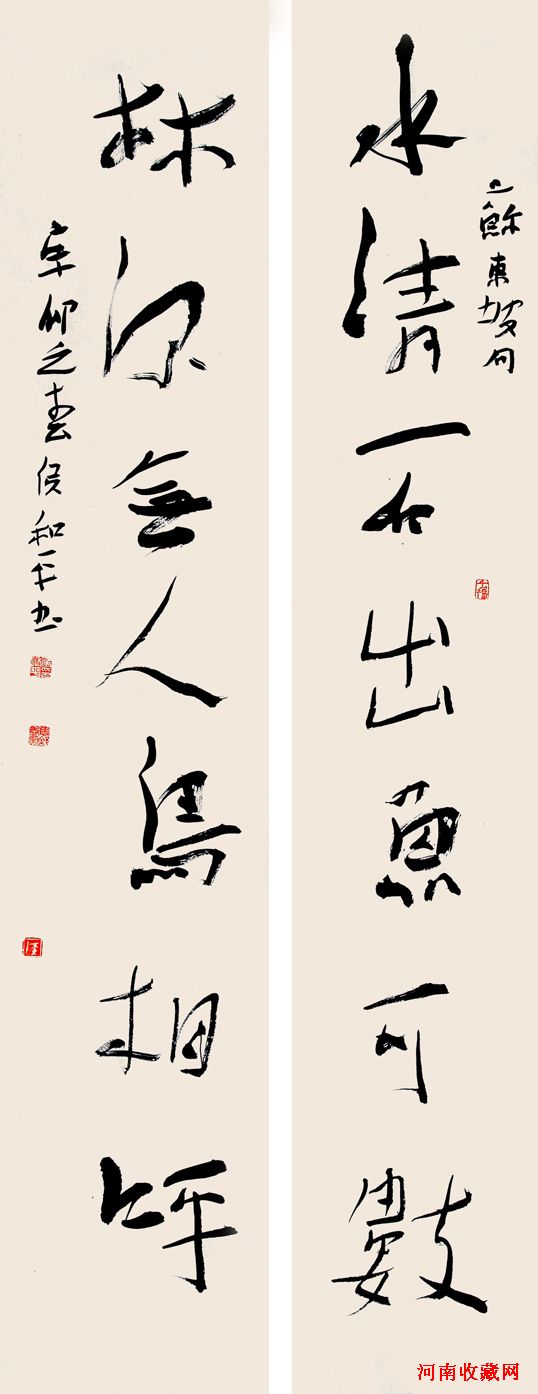 蘇東坡句
水清石出魚可數
林深無人鳥相呼
辛卯之春侯和平书
河南收藏网